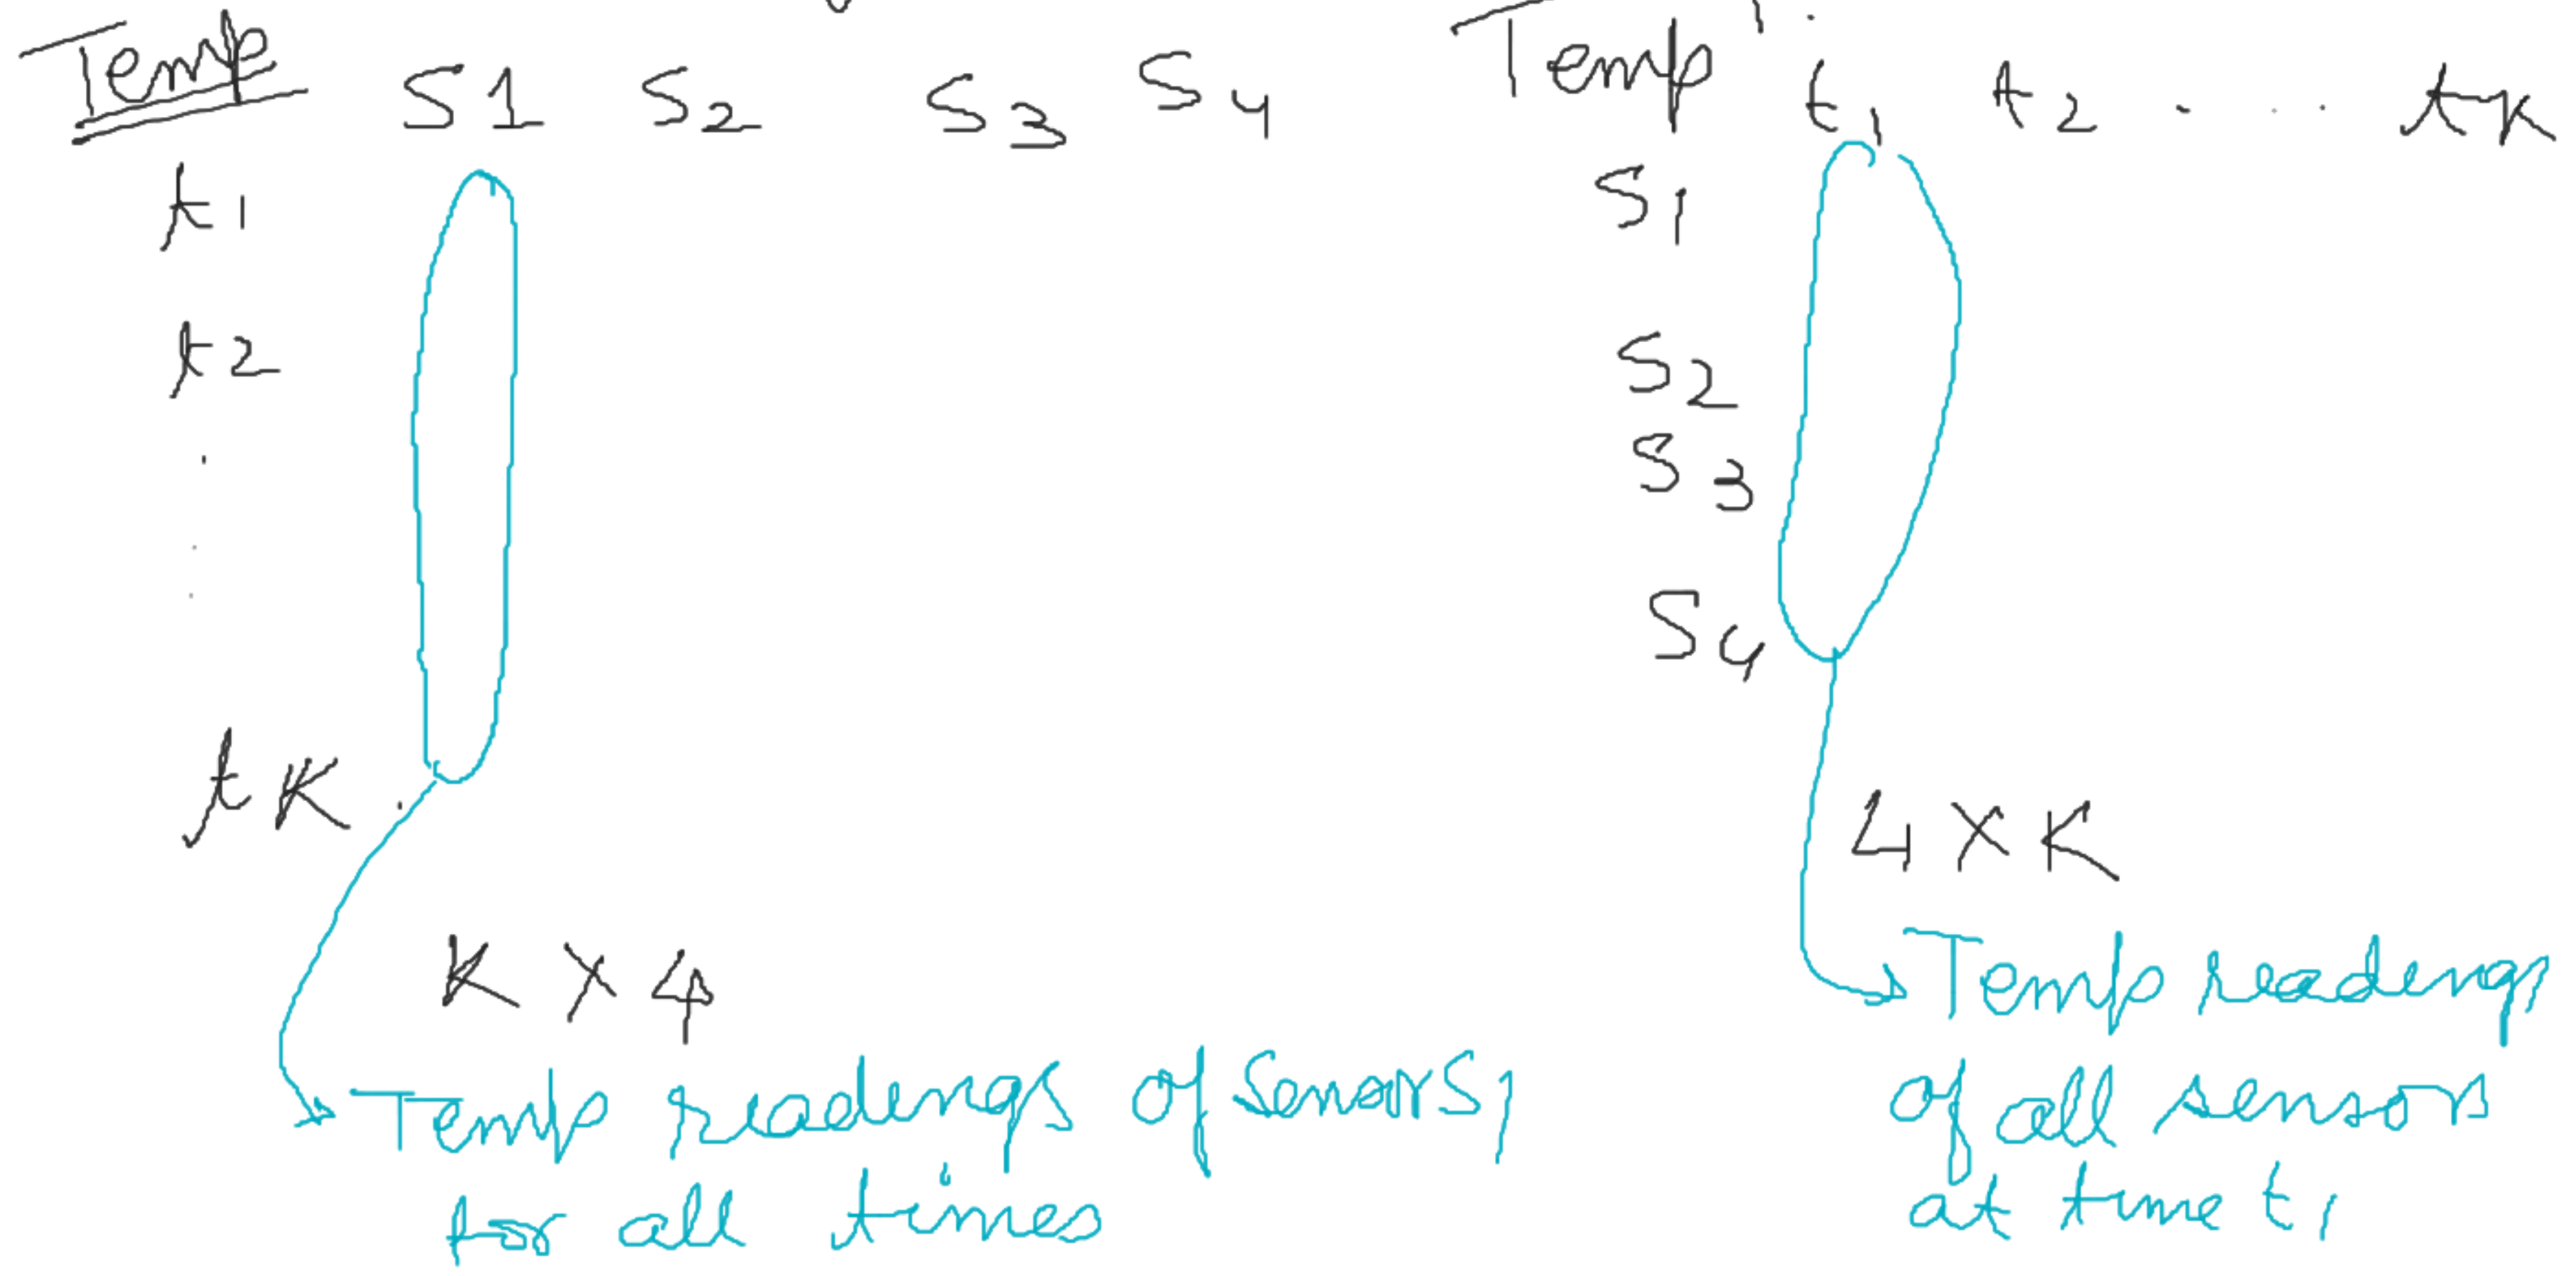 Temp S1 S2 S3 S4
t1
t2
.
.
.
tK
K X 4
Temp readings of Sensor S1
for all times
Temp t1 t2 . . . tK
S1
S2
S3
S4
4 X K
Temp readings
of all sensors
at time t1